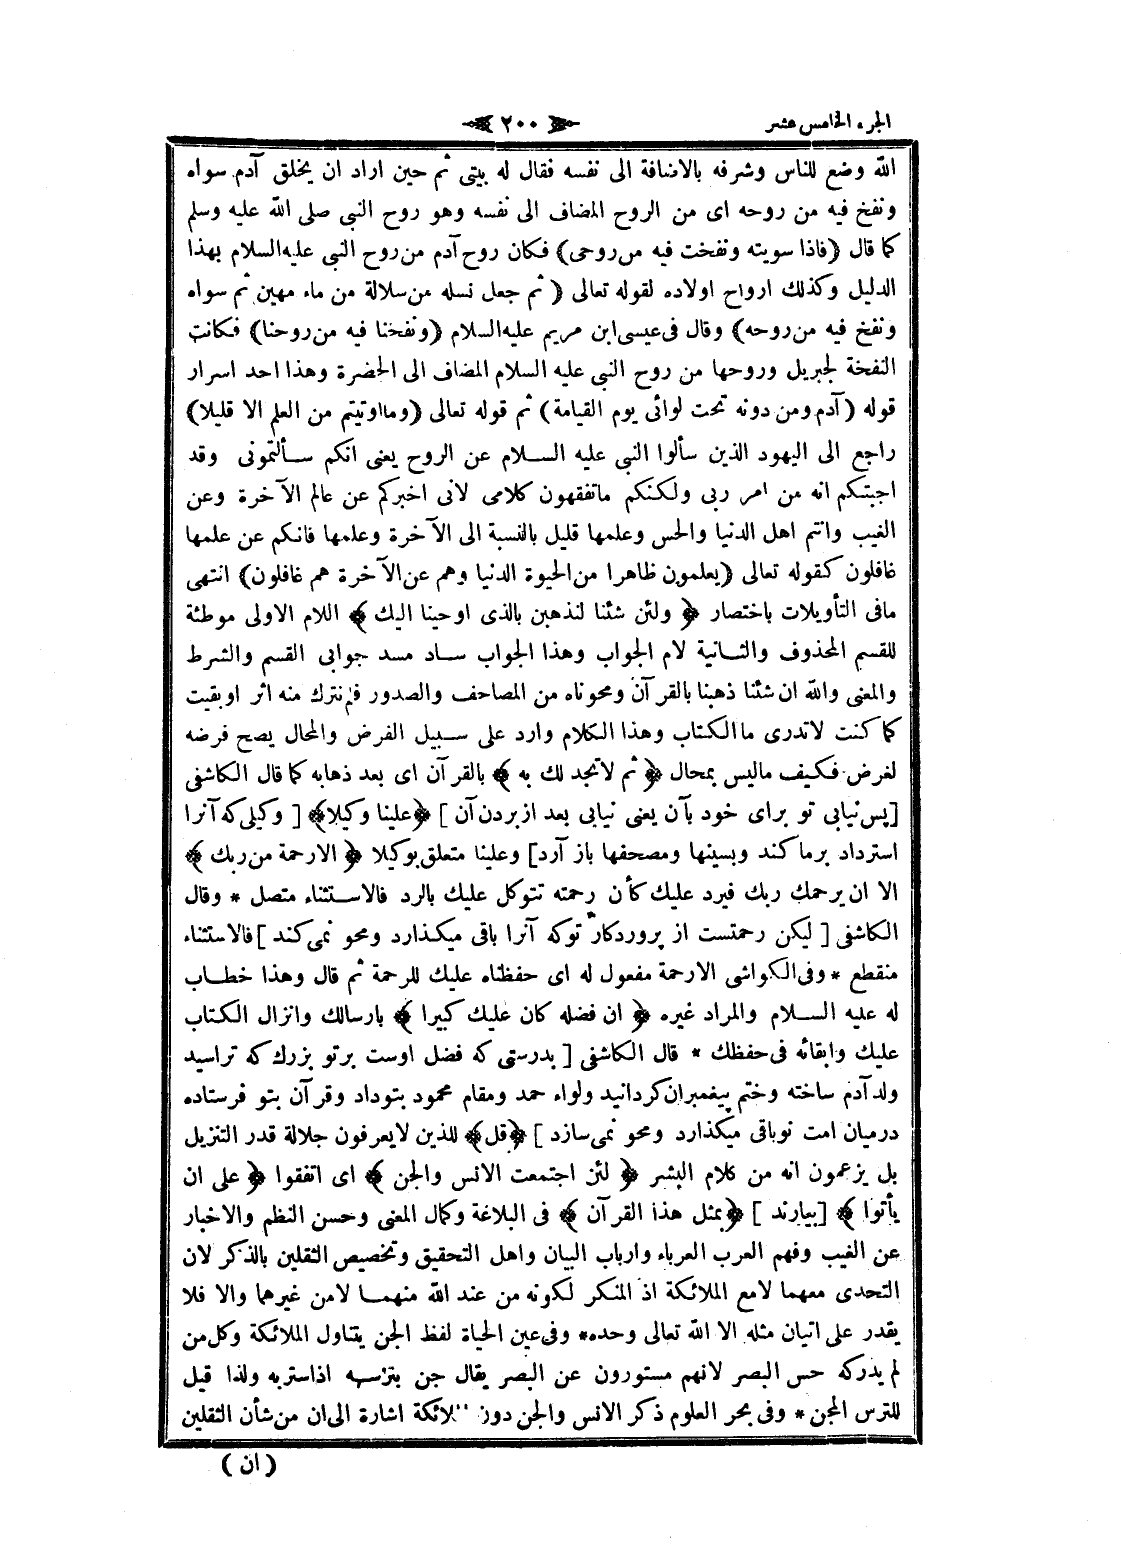 الجزء الخامس عشر ٢٠٠
الله وضع للناس وشرفه بالاضافة الى نفسه فقال له بيتى ثم حين اراد ان يخلق آدم سواه
ونفخ فيه من روحه اى من الروح المضاف الى نفسه وهو روح النبى صلى الله عليه وسلم
كما قال (فاذا سويته ونفخت فيه من روحى) فكان روح آدم من روح النبى عليه السلام بهذا
الدليل وكذلك ارواح اولاده لقوله تعالى (ثم جعل نسله من سلالة من ماء مهين ثم سواه
ونفخ فيه من روحه) وقال فى عيسى ابن مريم عليه السلام (ونفخنا فيه من روحنا) فكانت
النفخة لجبريل وروحها من روح النبى عليه السلام المضاف الى الحضرة وهذا احد اسرار
قوله (آدم ومن دونه تحت لوائى يوم القيامة) ثم قوله تعالى (وما اوتيتم من العلم الا قليلا)
راجع الى اليهود الذين سألوا النبى عليه السلام عن الروح يعنى انكم سألتمونى وقد
اجبتكم انه من امر ربى ولكنكم ماتفقهون كلامى لانى اخبركم عن عالم الآخرة وعن
الغيب وانتم اهل الدنيا والحس وعلمها قليل بالنسبة الى الآخرة وعلمها فانكم عن علمها
غافلون كقوله تعالى (يعلمون ظاهرا من الحيوة الدنيا وهم عن الآخرة هم غافلون) انتهى
مافى التأويلات باختصار ﴿ ولئن شئنا لنذهبن بالذى اوحينا اليك ﴾ اللام الاولى موطئة
للقسم المحذوف والثانية لام الجواب وهذا الجواب ساد مسد جوابى القسم والشرط
والمعنى والله ان شئنا ذهبنا بالقرآن ومحوناه من المصاحف والصدور فلم نترك منه اثر اوبقيت
كما كنت لاتدرى ماالكتاب وهذا الكلام وارد على سبيل الفرض والمحال يصح فرضه
لغرض فكيف ماليس بمحال ﴿ ثم لا تجد لك به ﴾ بالقرآن اى بعد ذهابه كما قال الكاشفى
[پس نيابى تو براى خود بآن يعنى نيابى بعد ازبردن آن] ﴿علينا وكيلا﴾ [ وكيلى كه آنرا
استرداد برما كند وبسينها ومصحفها باز آرد] وعلينا متعلق بوكيلا ﴿ الارحمة من ربك ﴾
الا ان يرحمك ربك فيرد عليك كأن رحمته تتوكل عليك بالرد فالاستثناء متصل * وقال
الكاشفى [ ليكن رحمتست از پروردكار توكه آنرا باقى ميكذارد ومحو نمى كند ] فالاستثناء
منقطع * وفى الكواشى الارحمة مفعول له اى حفظناه عليك للرحمة ثم قال وهذا خطاب
له عليه السلام والمراد غيره ﴿ ان فضله كان عليك كبيرا ﴾ بارسالك وانزال الكتاب
عليك وابقائه فى حفظك * قال الكاشفى [ بدرستى كه فضل اوست برتو بزرك كه تراسيد
ولد آدم ساخته وختم پيغمبران كردانيد ولواء حمد ومقام محمود بتوداد وقرآن بتو فرستاده
درميان امت توباقى ميكذارد ومحو نمى سازد ] ﴿قل﴾ للذين لايعرفون جلالة قدر التنزيل
بل يزعمون انه من كلام البشر ﴿ لئن اجتمعت الانس والجن ﴾ اى اتفقوا ﴿ على ان
يأتوا ﴾ [بيارند ] ﴿بمثل هذا القرآن ﴾ فى البلاغة وكمال المعنى وحسن النظم والاخبار
عن الغيب وفهم العرب العرباء وارباب البيان واهل التحقيق وتخصيص الثقلين بالذكر لان
التحدى معهما لامع الملائكة اذ المنكر لكونه من عند الله منهما لامن غيرهما والا فلا
يقدر على اتيان مثله الا الله تعالى وحده* وفى عين الحياة لفظ الجن يتناول الملائكة وكل من
لم يدركه حس البصر لانهم مستورون عن البصر يقال جن بترسه اذاستربه ولذا قيل
للترس المجن * وفى بحر العلوم ذكر الانس والجن دون الملائكة اشارة الى ان من شأن الثقلين
(ان)